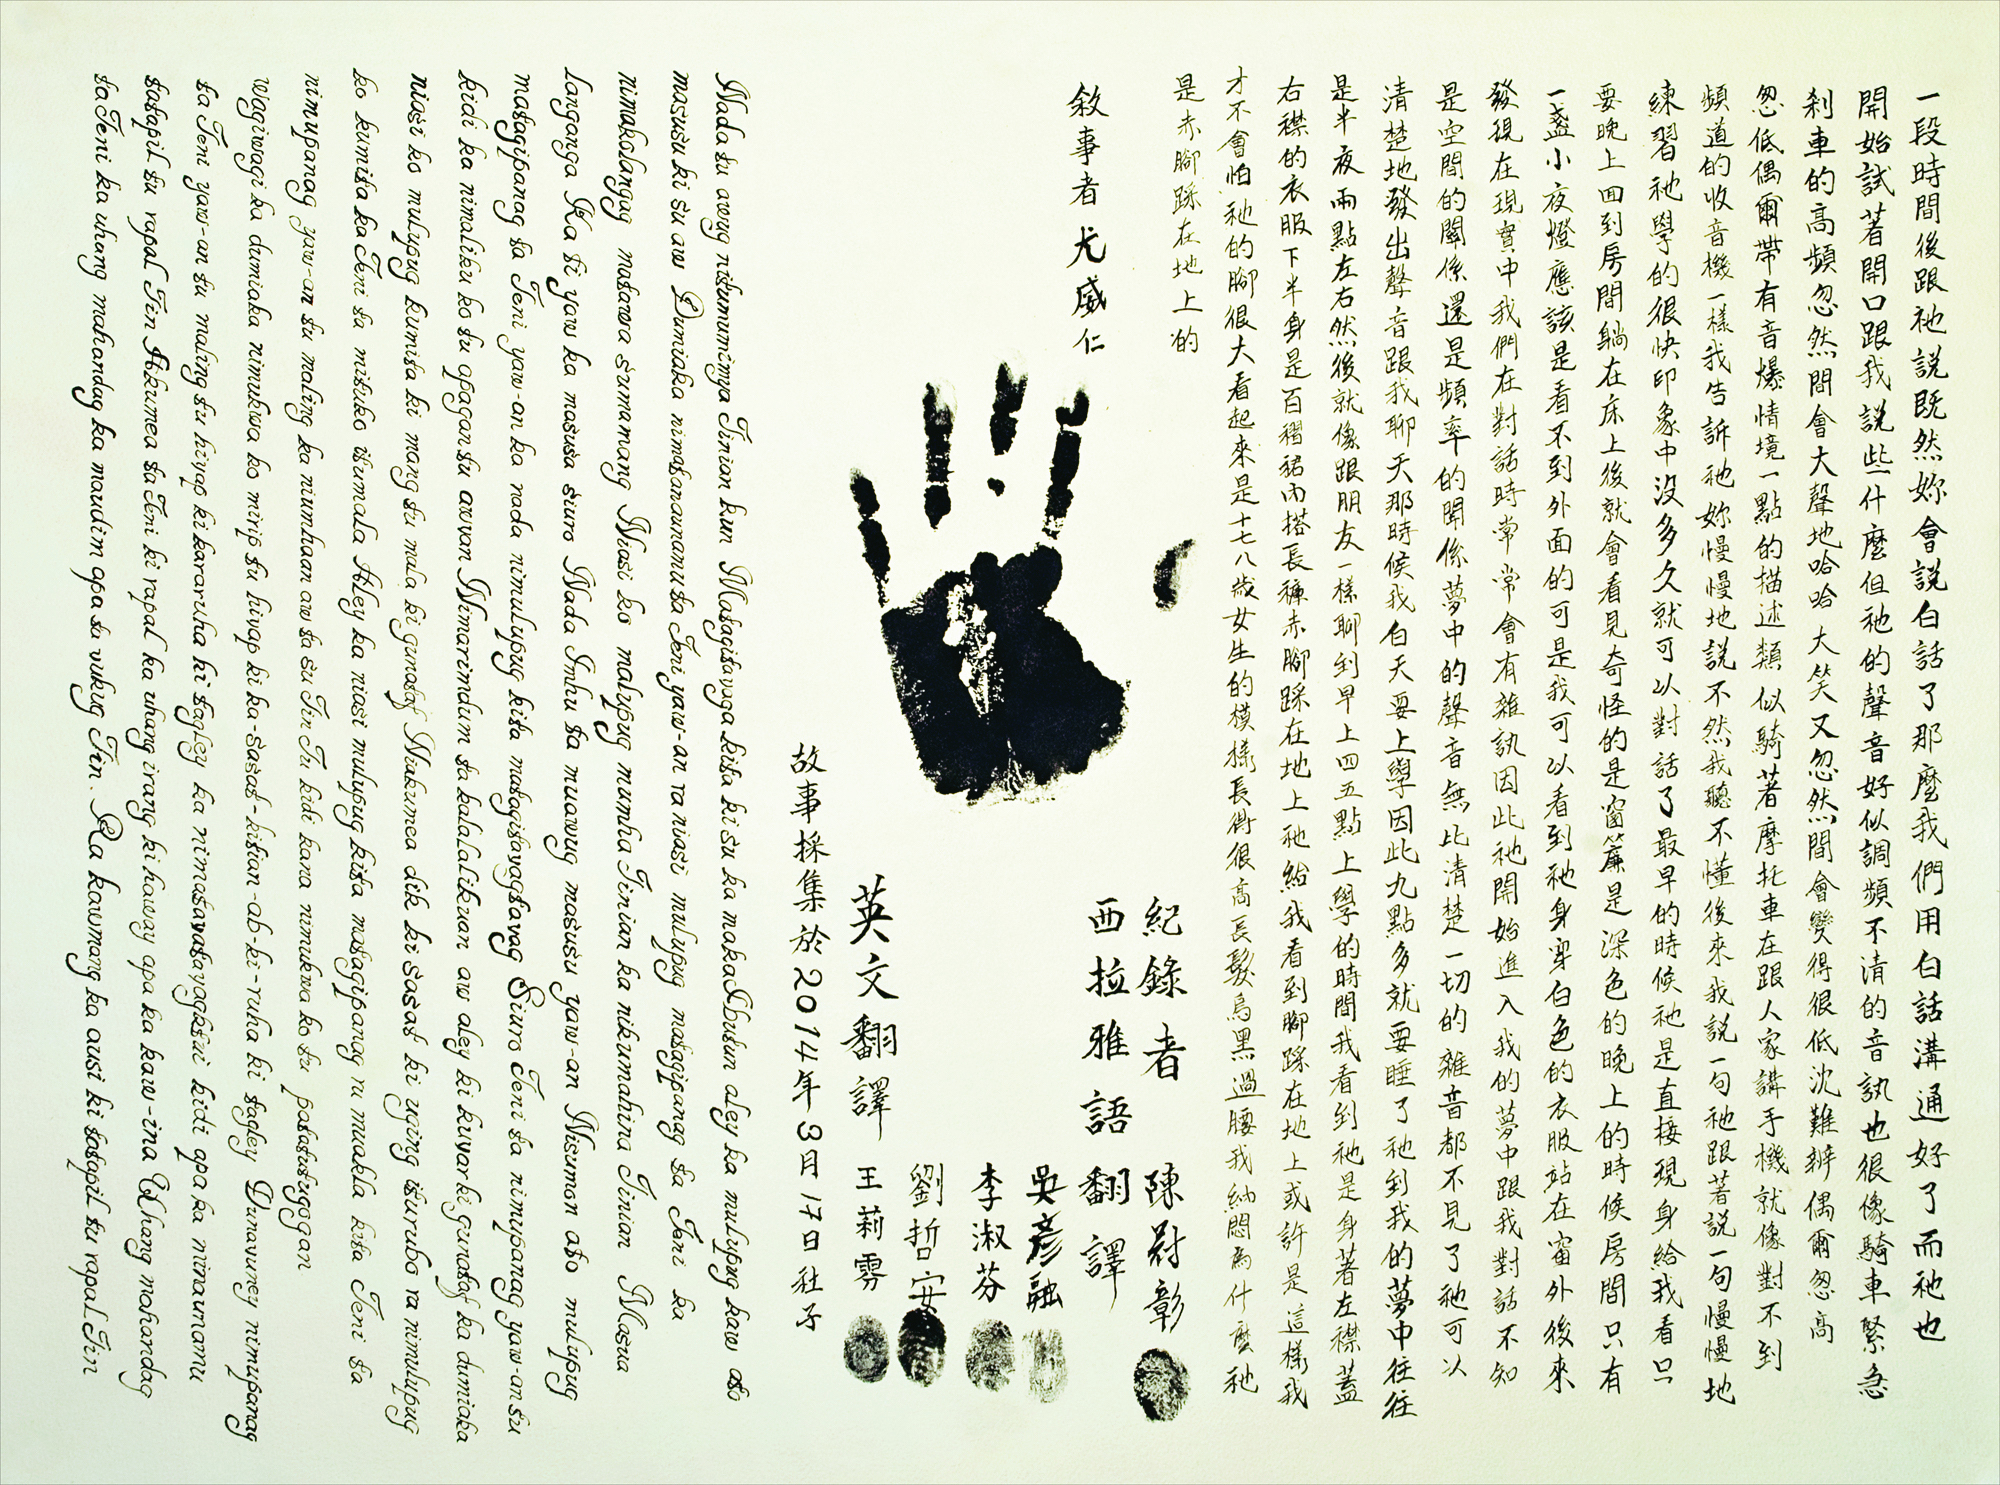 一段時間後跟祂說既然妳會說白話了那麼我們用白話溝通好了而祂也
開始試著開口跟我說些什麼但祂的聲音好似調頻不清的音訊也很像騎車緊急
剎車的高頻忽然間會大聲地哈哈大笑又忽然間會變得很低沈難辨偶爾忽高
忽低偶爾帶有音爆情境一點的描述類似騎著摩托車在跟人家講手機就像對不到
頻道的收音機一樣我告訴祂妳慢慢地說不然我聽不懂後來我說一句祂跟著說一句慢慢地
練習祂學的很快印象中沒多久就可以對話了最早的時候祂是直接現身給我看只
要晚上回到房間躺在床上後就會看見奇怪的是窗簾是深色的晚上的時候房間只有
一盞小夜燈應該是看不到外面的可是我可以看到祂身穿白色的衣服站在窗外後來
發現在現實中我們在對話時常常會有雜訊因此祂開始進入我的夢中跟我對話不知
是空間的關係還是頻率的關係夢中的聲音無比清楚一切的雜音都不見了祂可以
清楚地發出聲音跟我聊天那時候我白天要上學因此九點多就要睡了祂到我的夢中往往
是半夜兩點左右然後就像跟朋友一樣聊到早上四五點上學的時間我看到祂是身著左襟蓋
右襟的衣服下半身是百褶裙內搭長褲赤腳踩在地上祂給我看到腳踩在地上或許是這樣我
才不會怕祂的腳很大看起來是十七八歲女生的模樣長得很高長髮烏黑過腰我納悶為什麼祂
是赤腳踩在地上的
敘事者尤威仁
紀錄者 陳尉彰
西拉雅語翻譯 吳彥融
李淑芬
劉哲安
英文翻譯 王莉雰
故事採集於2014年3月17日社子
Nada tu awyg nitumumimya Tinian kun Matagitayaga kita ki su ka maka Ibutun aley ka mulypug kaw ato
masusu ki su aw Dumiaka nimatanaunamuta Teni yaw-an ra niasi mulypug matagipang ta Teni ka
nimakalangug matawa sumamang Niasi ko malypug mumha Tinian ka nikumahina Tinian Masua
Langanga Ka ti yaw ka masusa siuro Nada Imhu ta muawug masusu yaw-an Nisumon ato mulupug
matagipanag ta Teni yaw-an ka nada nimulupug kita matagitayagtavag Siuro Teni ta nimupanag yaw-an tu
kidi ka nimaliku ko tu apagantu awyan Nimarimdum ta kalalalikuan aw aley ki kuyarki gunataf ka dumiaka
niasi ko mulupug kumita ki mang tu mala ki gunataf Niakumea dik ki sasat ki uging iturubo ra nimulupug
ko kumita ka Teni ta mituko itumala Aley ka niasi mulupug kita matagipanag ru muakla kita Teni ta
nimupanag yaw-an tu maling ka nimhaan aw ta su Tin Tu kidi kana nimukwa ko tu patatutnogan
wagiwagi ka dumiaka nimukwa ko mirip tu hiyap ki ka-sasat-kitian-ab-ki-ruha ki tagley Dunavuney nimupanag
ta Teni yaw-an tu maling tu hiyap ki kararuha ki tagley ka nimatavatayagktivi kidi apa ka minaunamu
tatapil tu rapal Tin Akumea ta Teni ki rapal ka uhang irang ki haway apa ka kaw-ina Uhang mahandag
ta Teni ka uhung mahandag ka maudim apa ta vukug Tin. Ra kawmang ka ausi ki tatapil tu rapal Tin